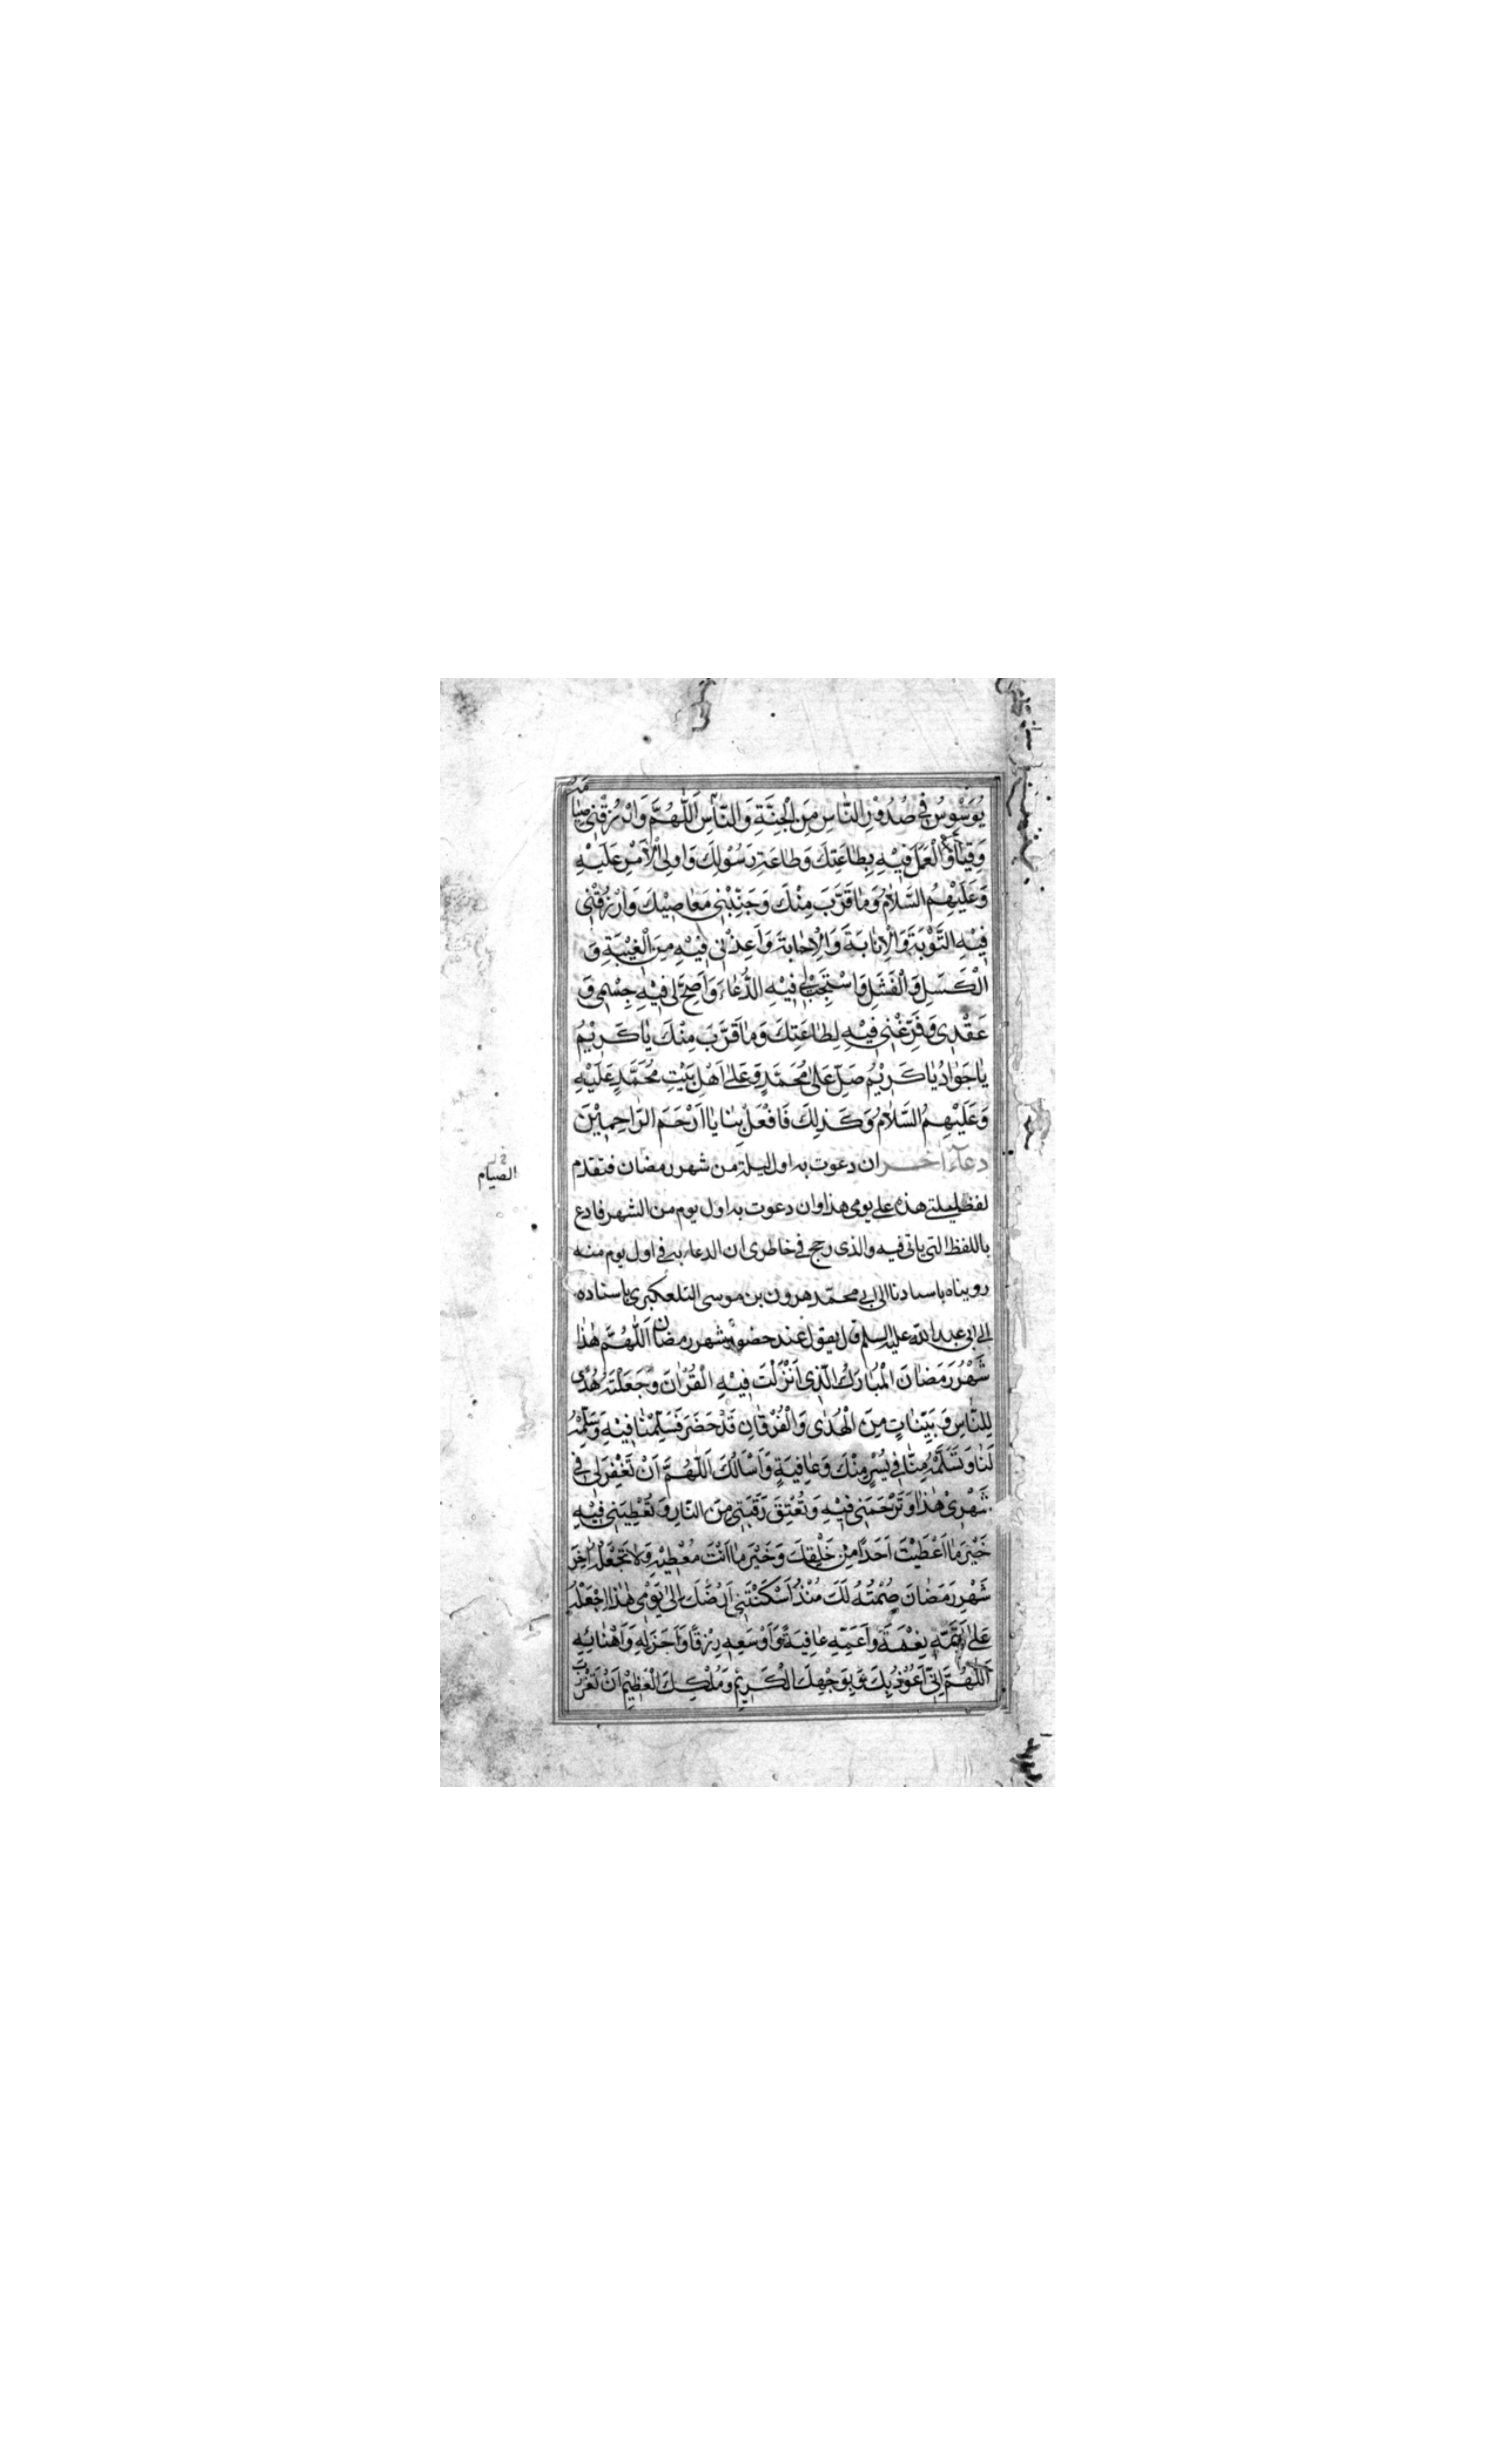 يُوَسْوِسُ فِي صُدُوْرِ النَّاسِ مِنَ الْجِنَّةِ وَالنَّاسِ اَللّٰهُمَّ وَارْزُقْنِي صِيَامَهُ
وَقِيَامَهُ وَالْعَمَلَ فِيْهِ بِطَاعَتِكَ وَطَاعَةِ رَسُوْلِكَ وَاُولِي الْاَمْرِ عَلَيْهِ
وَعَلَيْهِمُ السَّلَامُ وَمَا قَرَّبَ مِنْكَ وَجَنِّبْنِي مَعَاصِيْكَ وَارْزُقْنِي
فِيْهِ التَّوْبَةَ وَالْاِنَابَةَ وَالْاِجَابَةَ وَاَعِذْنِي فِيْهِ مِنَ الْغِيْبَةِ وَ
الْكَسَلِ وَالْفَشَلِ وَاسْتَجِبْ لِي فِيْهِ الدُّعَاءَ وَاَصِحَّ لِي فِيْهِ جِسْمِي وَ
عَقْدِي وَفَرِّغْنِي فِيْهِ لِطَاعَتِكَ وَمَا قَرَّبَ مِنْكَ يَا كَرِيْمُ
يَا جَوَادُ يَا كَرِيْمُ صَلِّ عَلَى مُحَمَّدٍ وَعَلَى اَهْلِ بَيْتِ مُحَمَّدٍ عَلَيْهِ
وَعَلَيْهِمُ السَّلَامُ وَكَذٰلِكَ فَافْعَلْ بِنَا يَا اَرْحَمَ الرَّاحِمِيْنَ
دعاء اخر ان دعوت به اول ليلة من شهر رمضان فتقدم
لفظ ليلتي هذه على يومي هذا وان دعوت به اول يوم من الشهر فادع
باللفظ التي ياتي فيه والذي رجح في خاطري ان الدعاء به في اول يوم منه
رويناه باسنادنا الى ابي محمّد هرون بن موسى التلعكبري باسناده
الى ابي عبد الله عليه السلم قال يقول عند حضور شهر رمضان اَللّٰهُمَّ هٰذَا
شَهْرُ رَمَضَانَ الْمُبَارَكُ الَّذِي اَنْزَلْتَ فِيْهِ الْقُرْاٰنَ وَجَعَلْتَهُ هُدًى
لِلنَّاسِ وَبَيِّنَاتٍ مِنَ الْهُدٰى وَالْفُرْقَانِ قَدْ حَضَرَ فَسَلِّمْنَا فِيْهِ وَسَلِّمْهُ
لَنَا وَتَسَلَّمْهُ مِنَّا فِي يُسْرٍ مِنْكَ وَعَافِيَةٍ وَاَسْاَلُكَ اَللّٰهُمَّ اَنْ تَغْفِرَ لِي فِي
شَهْرِي هٰذَا وَتَرْحَمَنِي فِيْهِ وَتُعْتِقَ رَقَبَتِي مِنَ النَّارِ وَتُعْطِيَنِي فِيْهِ
خَيْرَ مَا اَعْطَيْتَ اَحَدًا مِنْ خَلْقِكَ وَخَيْرَ مَا اَنْتَ مُعْطِيْهِ وَلَا تَجْعَلْهُ اٰخِرَ
شَهْرِ رَمَضَانَ صُمْتُهُ لَكَ مُنْذُ اَسْكَنْتَنِي اَرْضَكَ اِلٰى يَوْمِي هٰذَا اجْعَلْهُ
عَلَيَّ اَتَمَّهُ نِعْمَةً وَاَعَمَّهُ عَافِيَةً وَاَوْسَعَهُ رِزْقًا وَاَجْزَلَهُ وَاَهْنَاَهُ
اَللّٰهُمَّ اِنِّي اَعُوْذُ بِكَ وَبِوَجْهِكَ الْكَرِيْمِ وَمُلْكِكَ الْعَظِيْمِ اَنْ تَغْرُبَ
الصيام